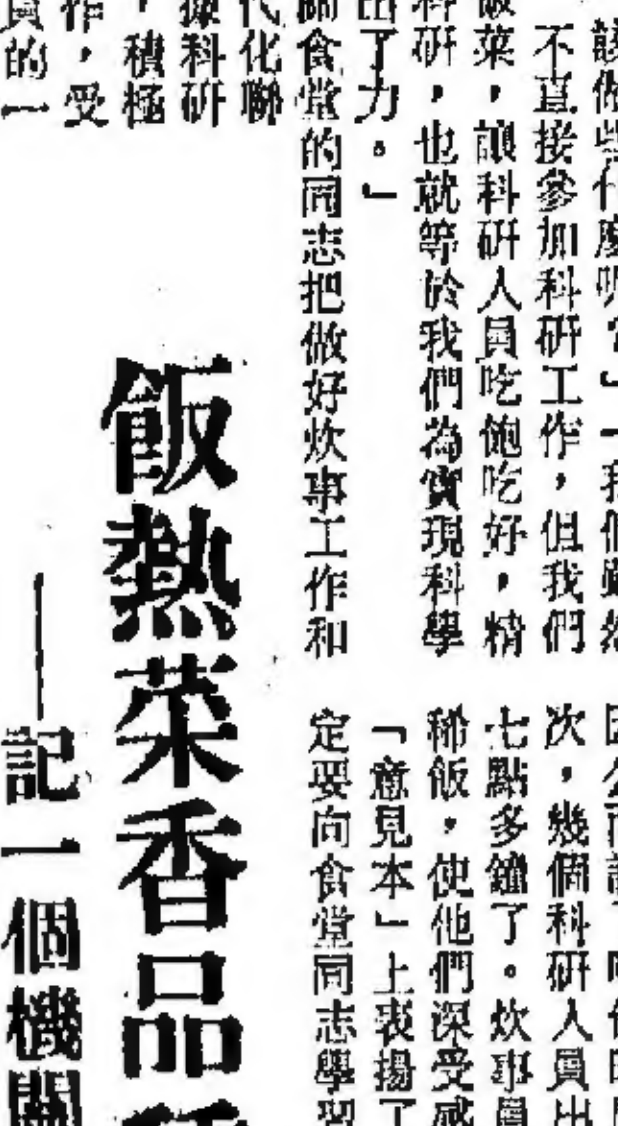 該做些什麼呢？」「我們雖然
不直接參加科研工作，但我們
飯菜，讓科研人員吃飽吃好，精
科研，也就等於我們為實現科學
出了力。」
關食堂的同志把做好炊事工作和
代化聯
據科研
，積極
作，受
員的一
因公而誤了
次，幾個科研人員出
七點多鐘了。炊事員
稀飯，使他們深受感
「意見本」上表揚了
定要向食堂同志學習
飯熱菜香品
——記一個機關